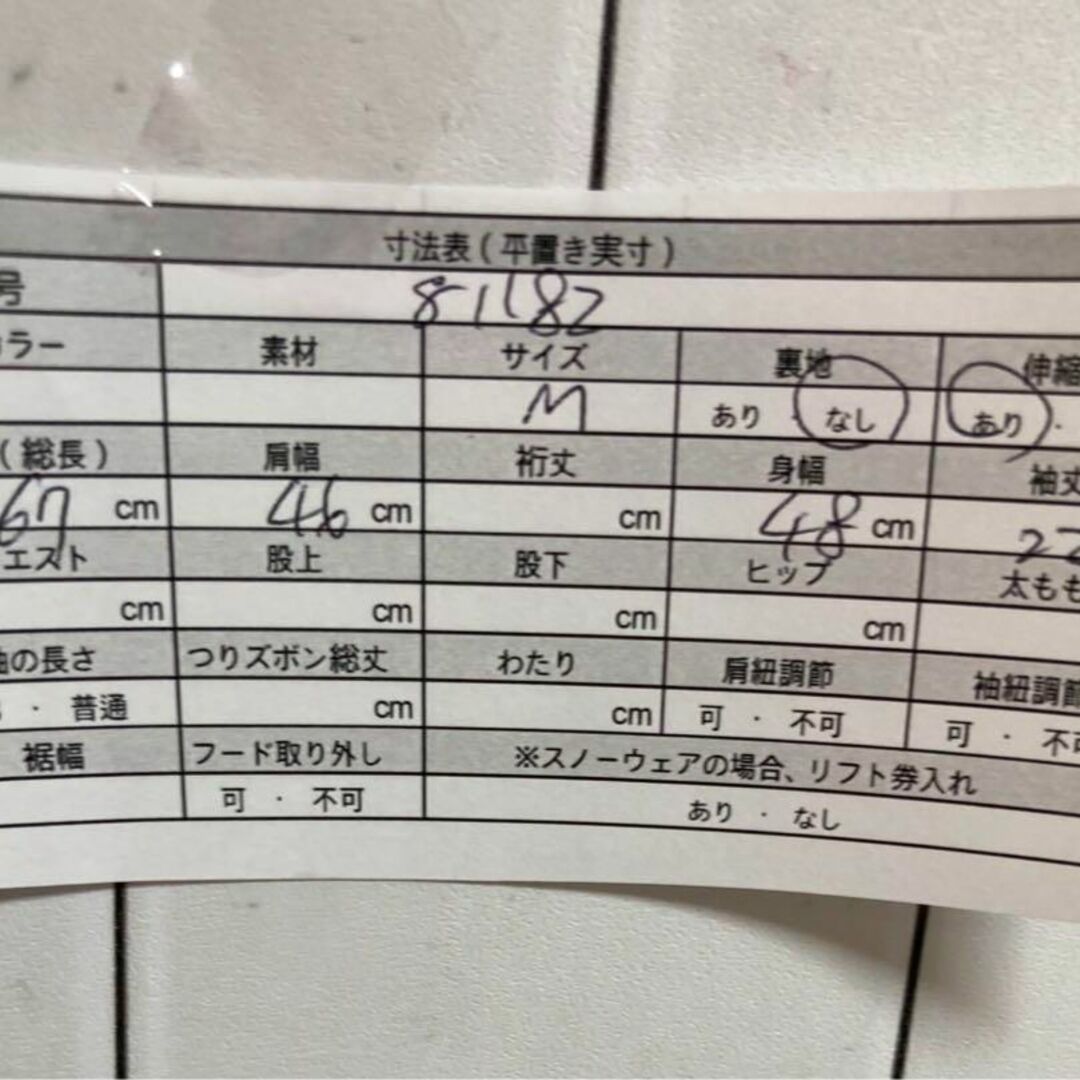 寸法表 ( 平置き実寸 )
号 81182
カラー 素材 サイズ 裏地 伸縮
M あり ・ なし あり ・
( 総長 ) 肩幅 裄丈 身幅 袖丈
67 cm 46 cm cm 48 cm 22
エスト 股上 股下 ヒップ 太もも
cm cm cm cm
の長さ つりズボン総丈 わたり 肩紐調節 袖紐調節
・ 普通 cm cm 可 ・ 不可 可 ・ 不可
裾幅 フード取り外し ※スノーウェアの場合、リフト券入れ
可 ・ 不可 あり ・ なし